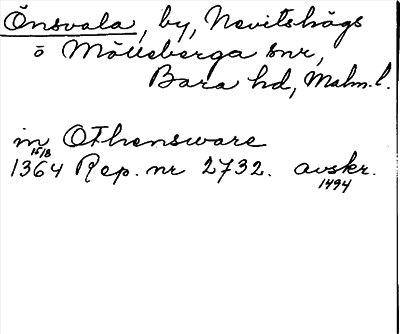 Önsvala, by, Nevitshögs
ö Mölleberga snr,
Bara hd, Malm.l.
in Othensware
15/8
1364 Rep. nr 2732. avskr.
1494